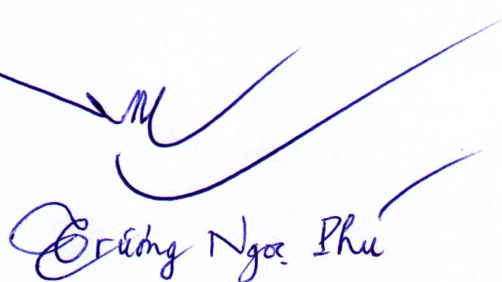 Trương Ngọc Phú